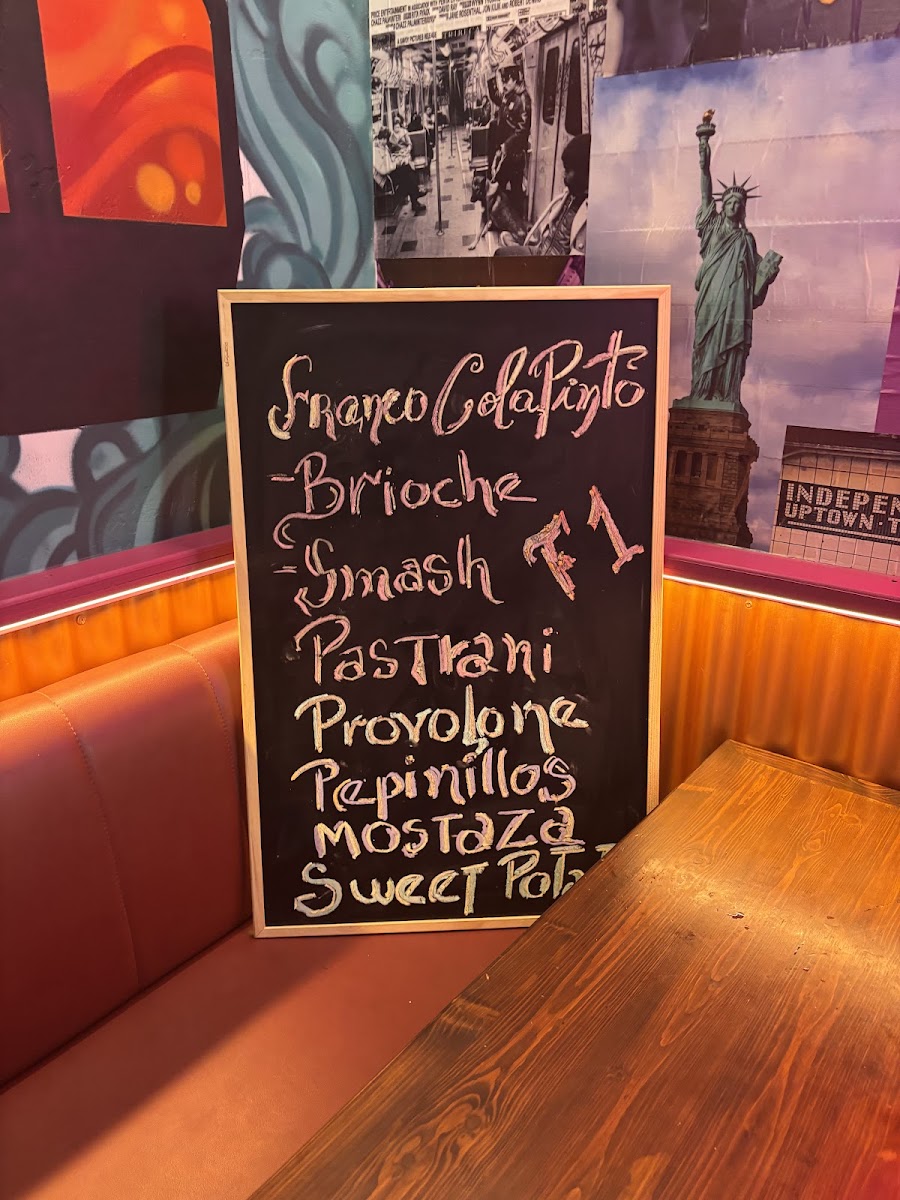 Franco ColaPinto
-Brioche
F1
-Smash
PasTrani
Provolone
Pepinillos
MOSTAZA
SWEET Pota
INDEPEN
UPTOWN·T